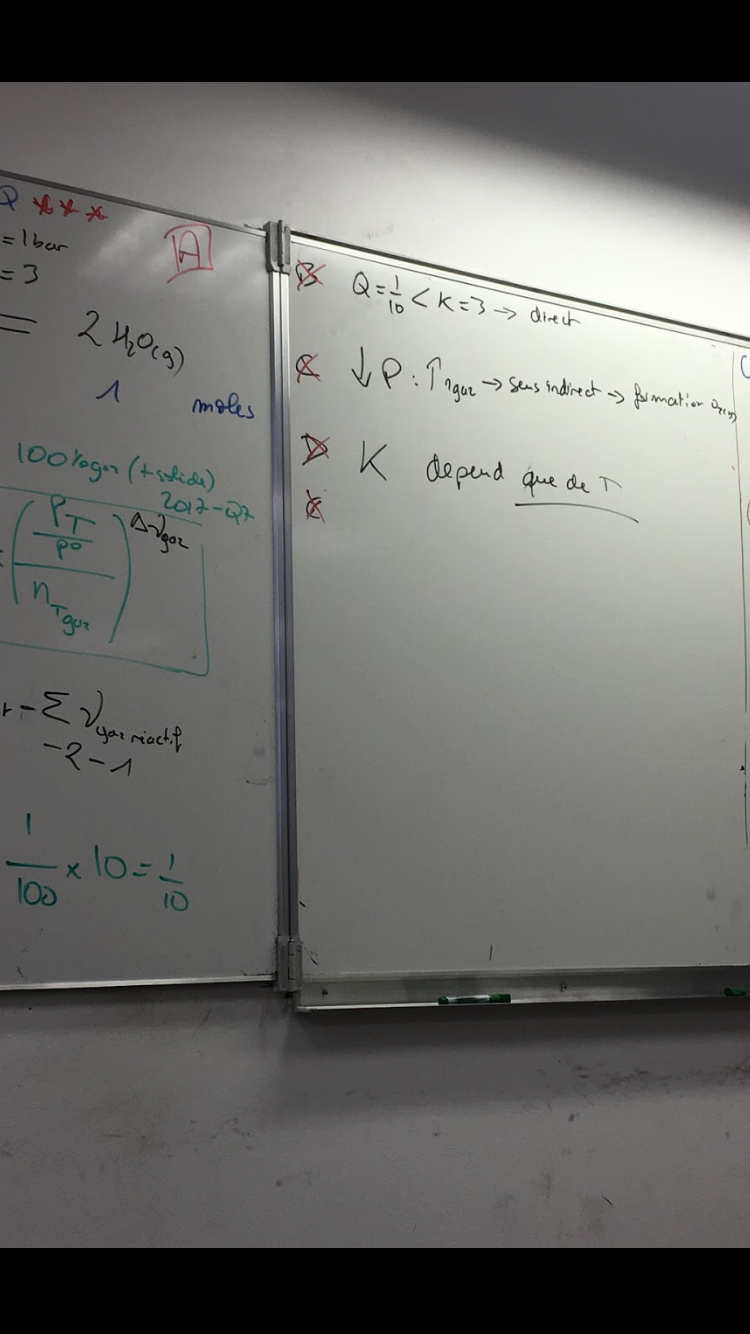 = 1 bar
= 3
A
= 2 H₂O(g)
1 moles
100% gaz (+ solide)
2017 - Q7
(P_T / P° / n_T gaz)^Δν gaz
- Σ ν gaz réactif
- 2 - 1
1/100 × 10 = 1/10
B Q = 1/10 < K = 3 → direct
C ↓ P : ↑ n gaz → sens indirect → formation O₂(g)
D K depend que de T
E